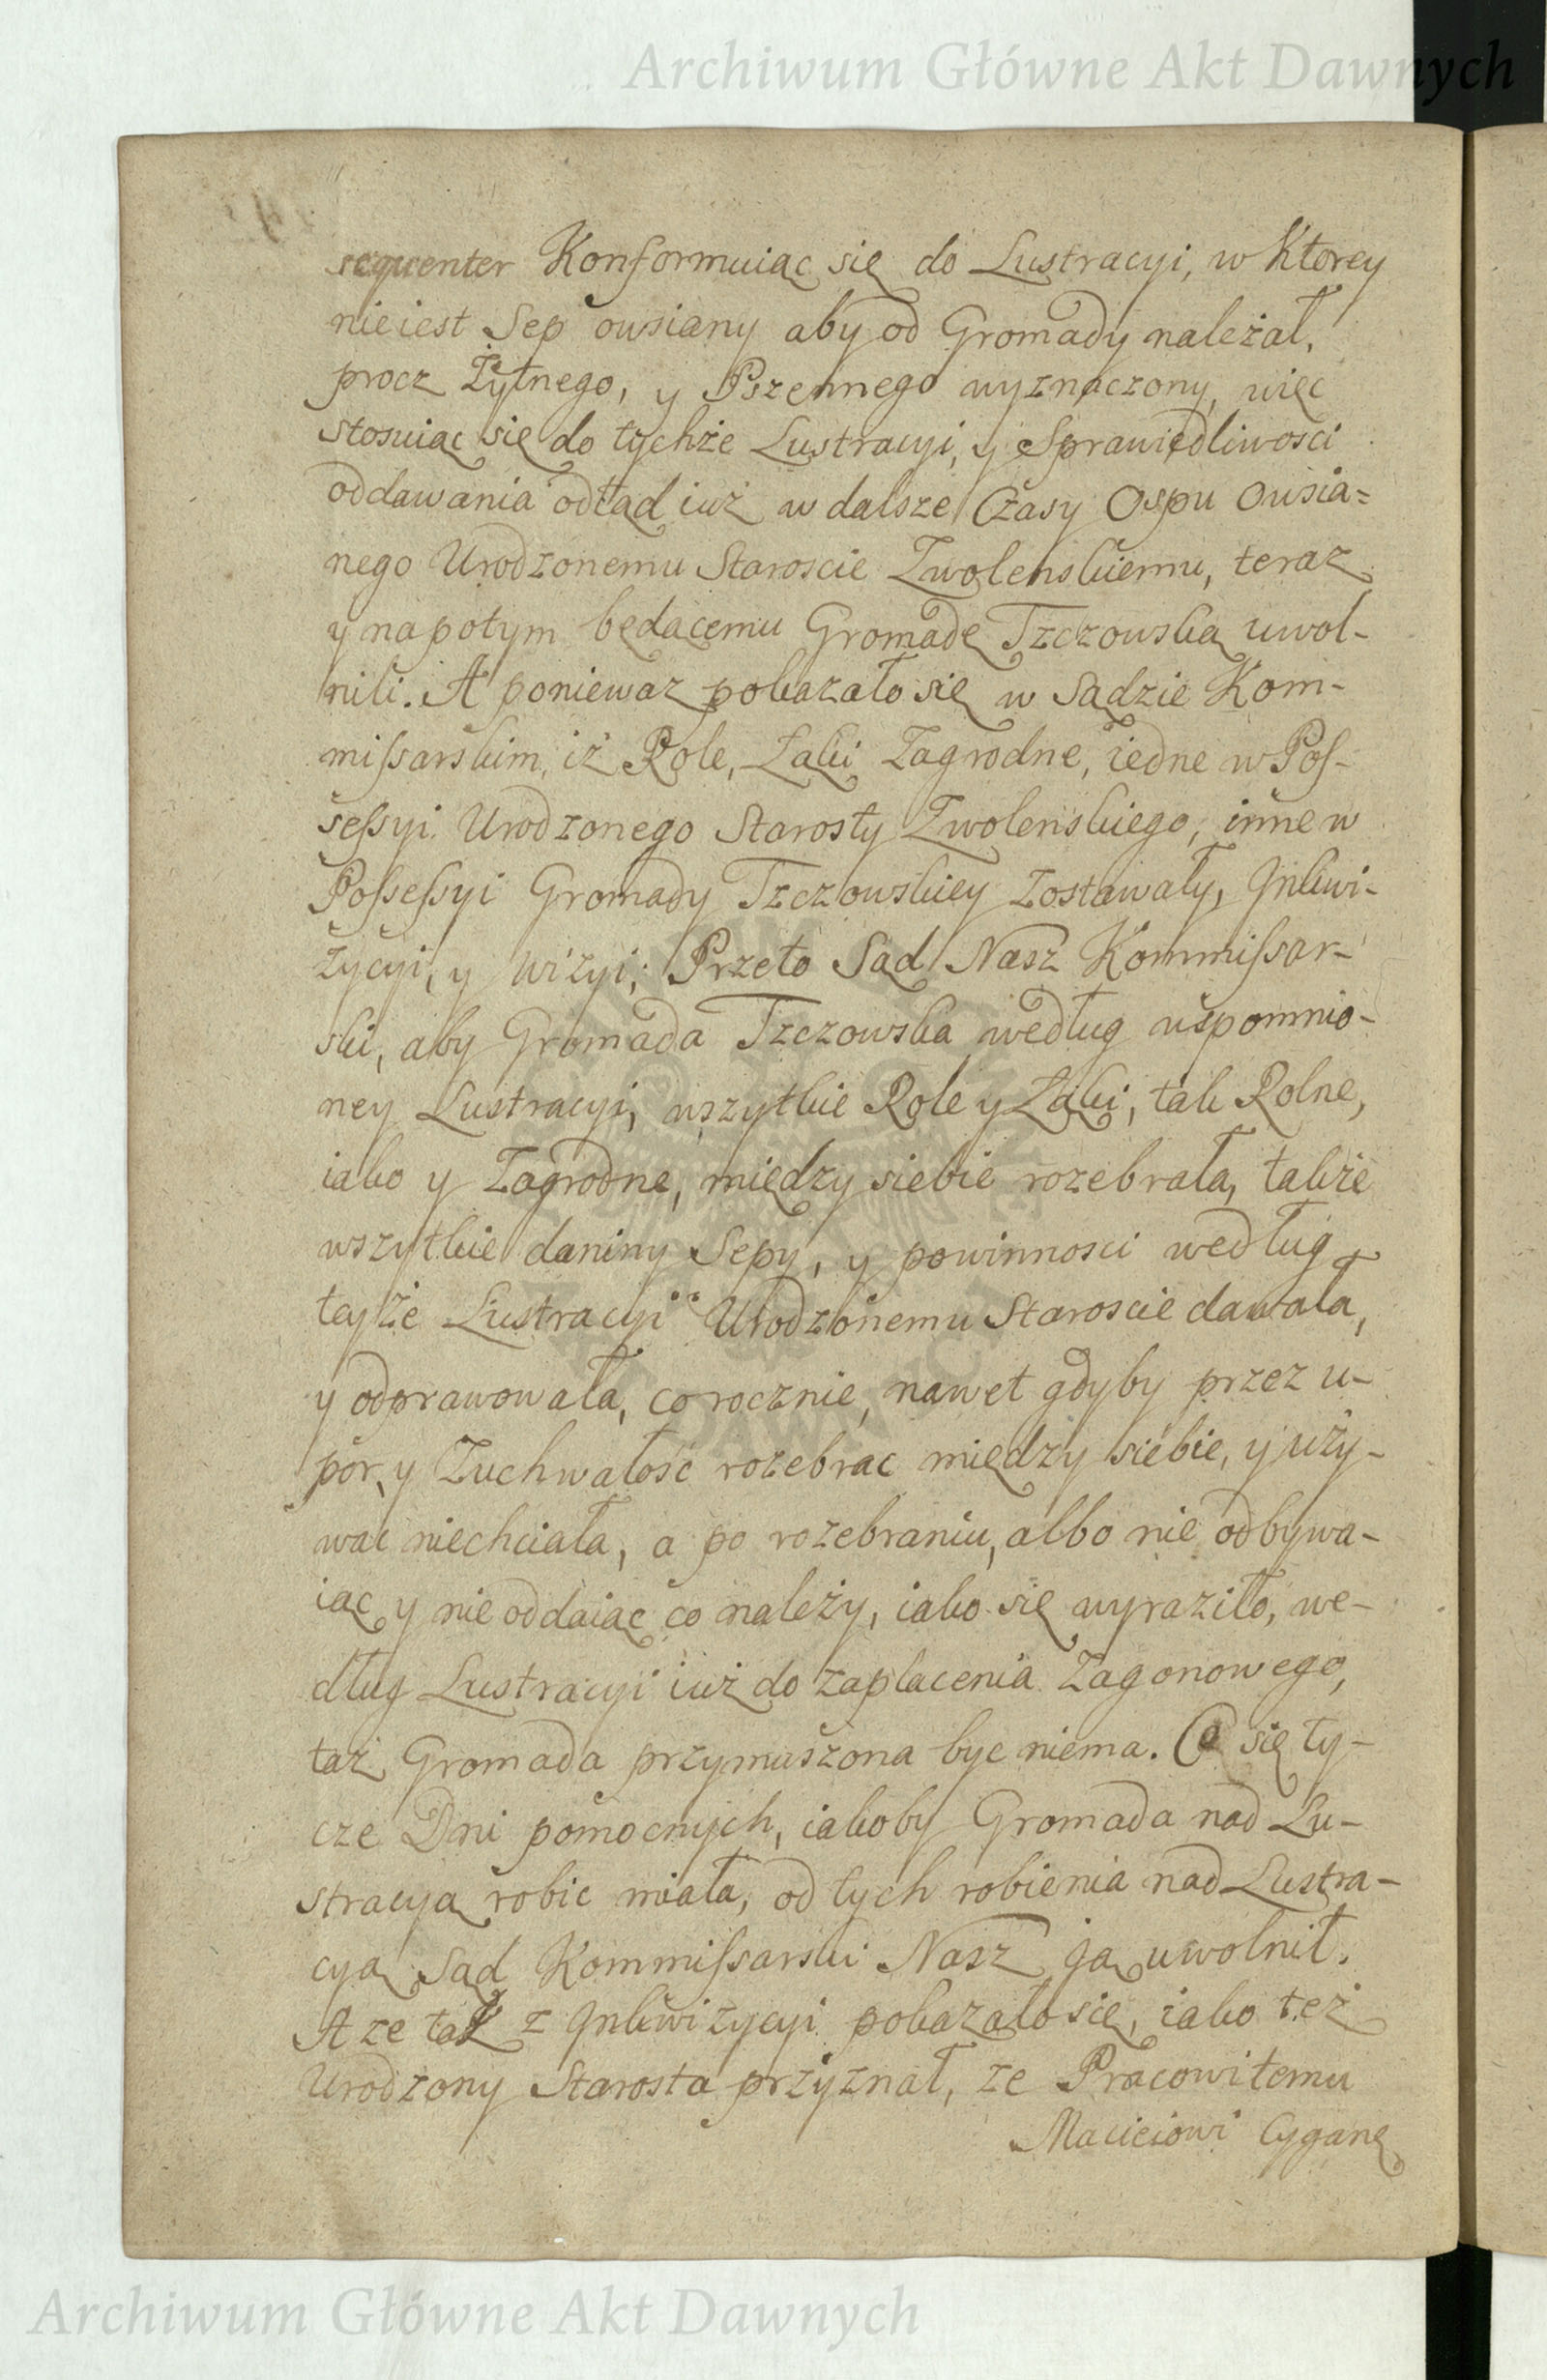 Archiwum Główne Akt Dawnych
sequenter Konformuiąc się do Lustracyi, w Ktorey
nieiest Sep owsiany aby od Gromady należał,
procz Żytnego, y Pszennego wyznaczony, więc
stosuiąc się do tychże Lustracyi, y Sprawiedliwosci
oddawania odtąd iuż w dalsze Czasy Ospu Owsia=
nego Urodzonemu Staroscie Zwolenskiemu, teraz
y napotym będącemu Gromadę Tzczowską uwol-
nili. A poniewaz pokazało się w Sądzie Kom-
missarskim, iż Role, Łąki Zagrodne, iedne w Pos-
sessyi Urodzonego Starosty Zwolenskiego, inne w
Possessyi Gromady Tzczowskiey zostawały, Inkwi-
zycyi, y wizyi; Przeto Sąd Nasz Kommissar-
ski, aby Gromada Tzczowska według wspomnio-
ney Lustracyi, wszytkie Role y Łąki, tak Rolne,
iako y Zagrodne, między siebie rozebrała, także
wszytkie daniny Sepy, y powinnosci według
teyże Lustracyi Urodzonemu Staroscie dawała,
y odprawowała, corocznie, nawet gdyby przez u-
por, y Zuchwałość rozebrac między siebie, y uży-
wac niechciała, a po rozebraniu, albo nie odbywa-
iąc y nie oddaiąc co należy, iako się wyraziło, we-
dług Lustracyi iuż do zapłacenia Zagonowego,
taż Gromada przymuszona byc niema. Co się ty-
cze Dni pomocnych, iakoby Gromada nad Lu-
stracyą robic miała, od tych robienia nad Lustra-
cyą Sąd Kommissarski Nasz ją uwolnił.
A ze tak z Inkwizycyi pokazało się, iako też
Urodzony Starosta przyznał, ze Pracowitemu
Macieiowi Cyganę
Archiwum Główne Akt Dawnych